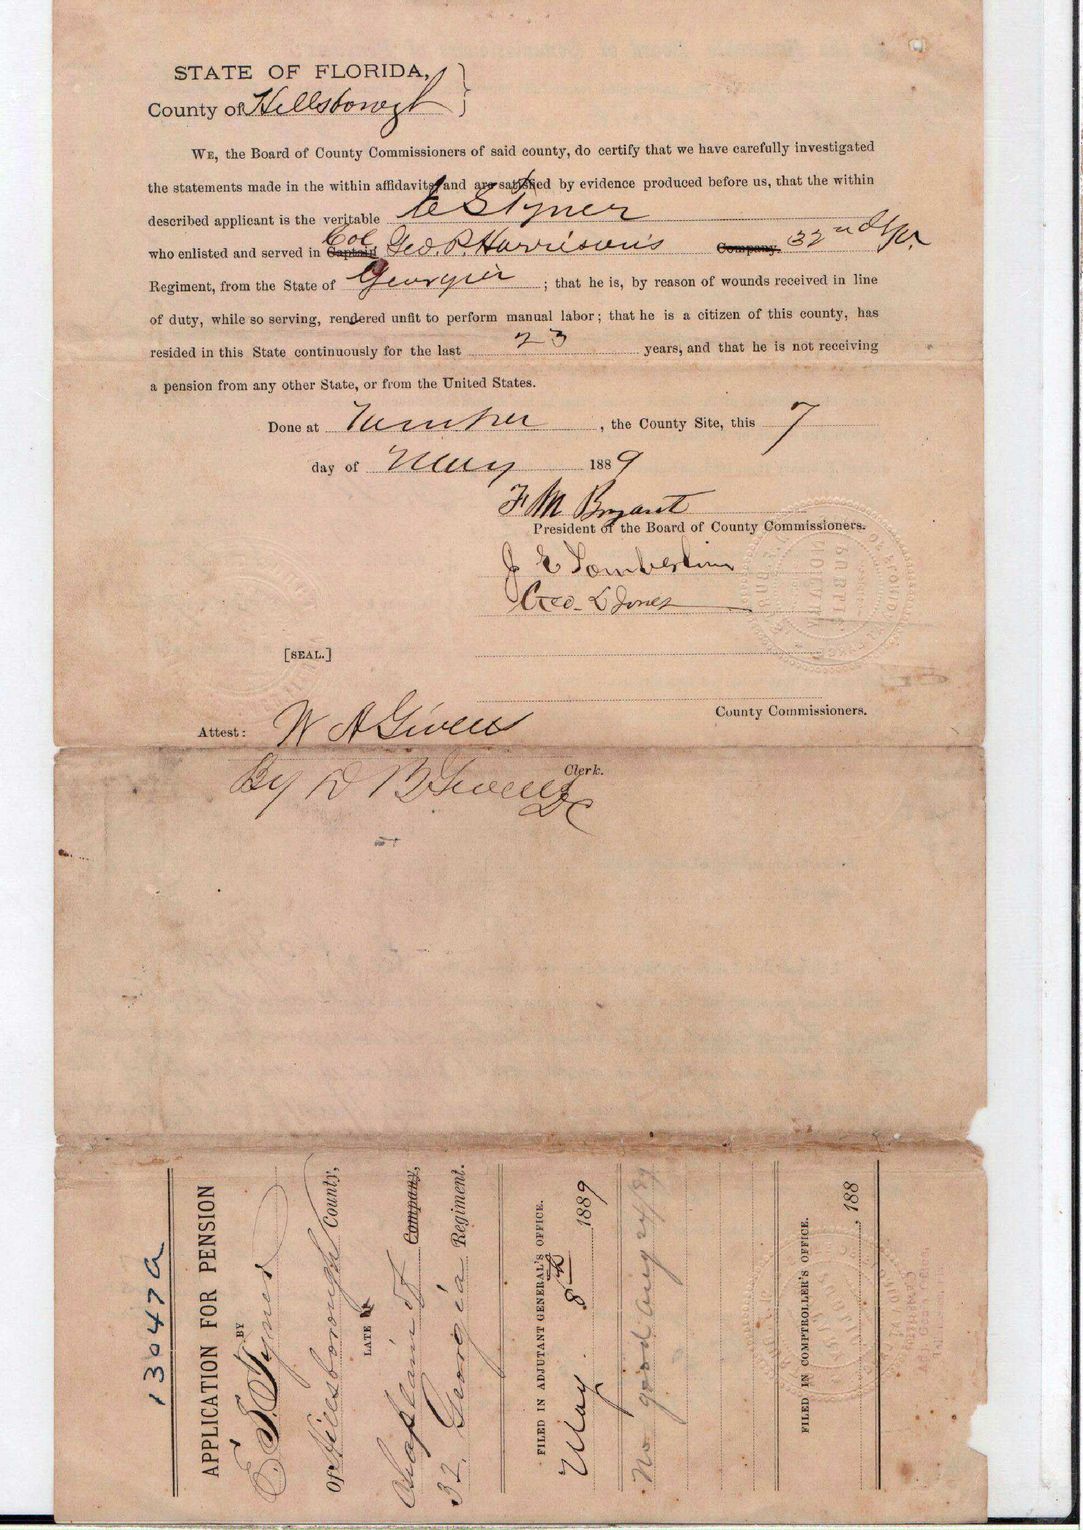 STATE OF FLORIDA,
County of Hillsborough
WE, the Board of County Commissioners of said county, do certify that we have carefully investigated
the statements made in the within affidavits, and are satisfied by evidence produced before us, that the within
described applicant is the veritable C S Tyner
who enlisted and served in Captain Col Geo. P. Harrison's Company. 32nd
Regiment, from the State of Georgia ; that he is, by reason of wounds received in line
of duty, while so serving, rendered unfit to perform manual labor; that he is a citizen of this county, has
resided in this State continuously for the last 23 years, and that he is not receiving
a pension from any other State, or from the United States.
Done at Tampa , the County Site, this 7
day of May 1889
F M Bryant
President of the Board of County Commissioners.
J E Lamberlin
Geo. L Jones
[SEAL.]
County Commissioners.
Attest: W A Givens
Clerk.
By D B Givens DC
13047a
APPLICATION FOR PENSION
BY
E. S. Tyner
OF Hillsborough County,
LATE
Chaplain of Company,
32. Georgia Regiment.
FILED IN ADJUTANT GENERAL'S OFFICE.
May. 8th 1889
No good Aug 24/89
FILED IN COMPTROLLER'S OFFICE.
, 188